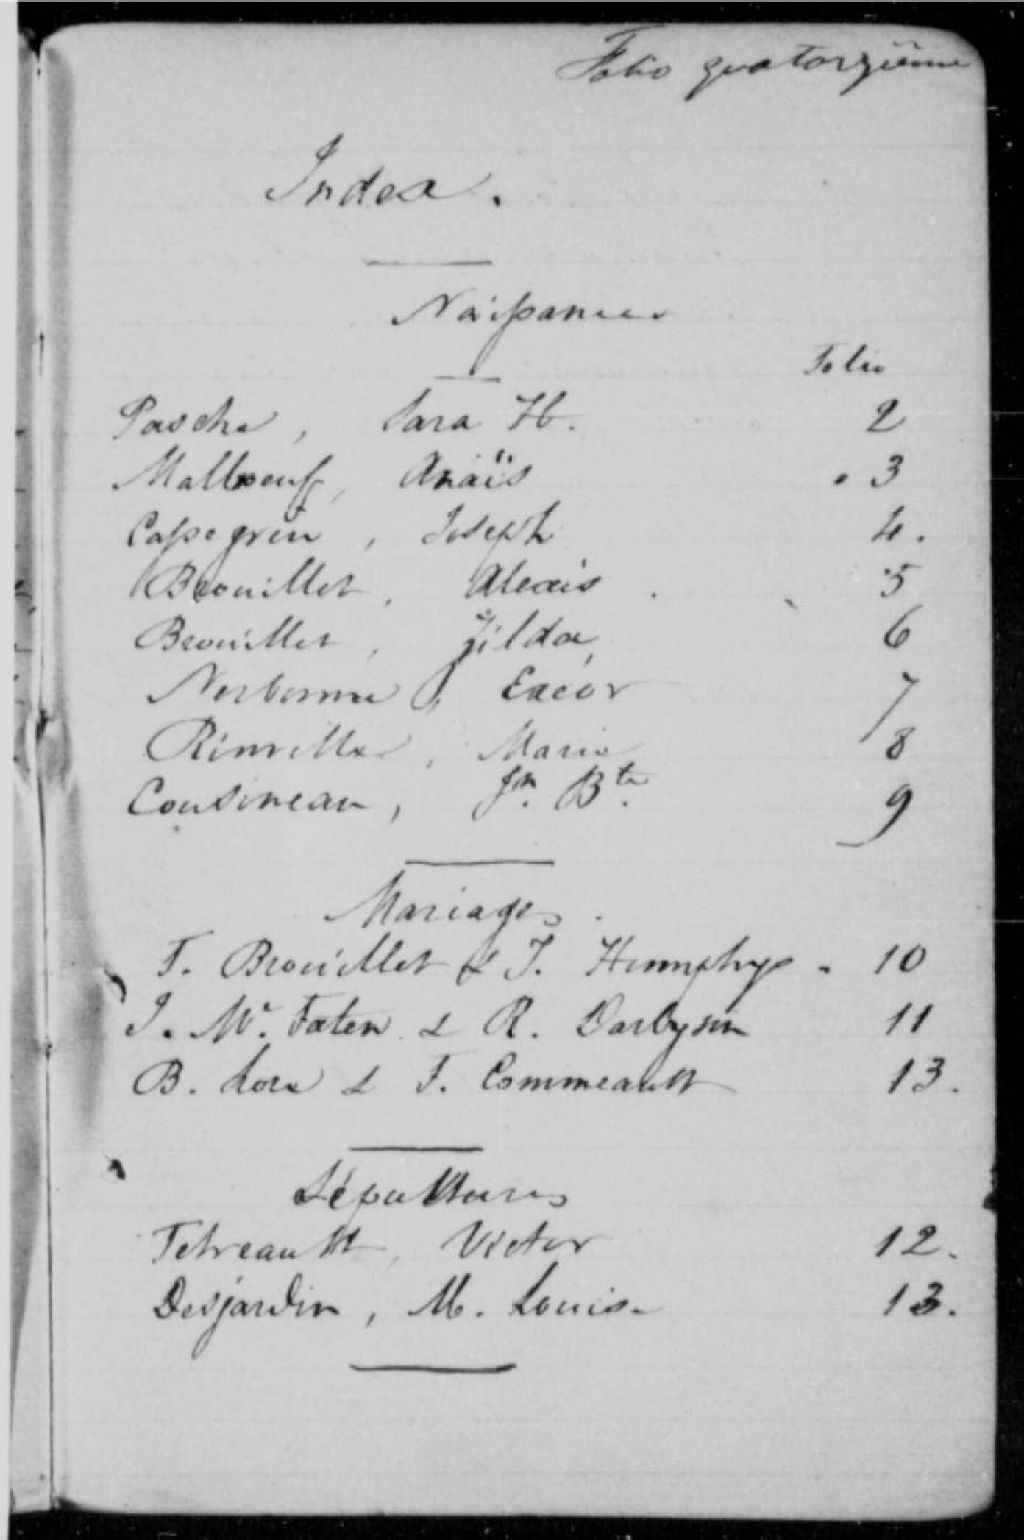 Folio quatorzième
Index.
Naissances
Folio
Pasche, Sara H. 2
Malboeuf, Anaïs 3
Cassegrin, Joseph 4.
Brouillet, Alexis 5
Brouillet, Gildae 6
Narbonne, Exéor 7
Rinville, Marie 8
Cousineau, Jn. Bte. 9
Mariages.
F. Brouillet & J. Humphrys 10
J. Mc. Faten & R. Darbyson 11
B. Lore & F. Commeault 13.
Sépultures
Tetreault, Victor 12.
Desjardin, M. Louise 13.